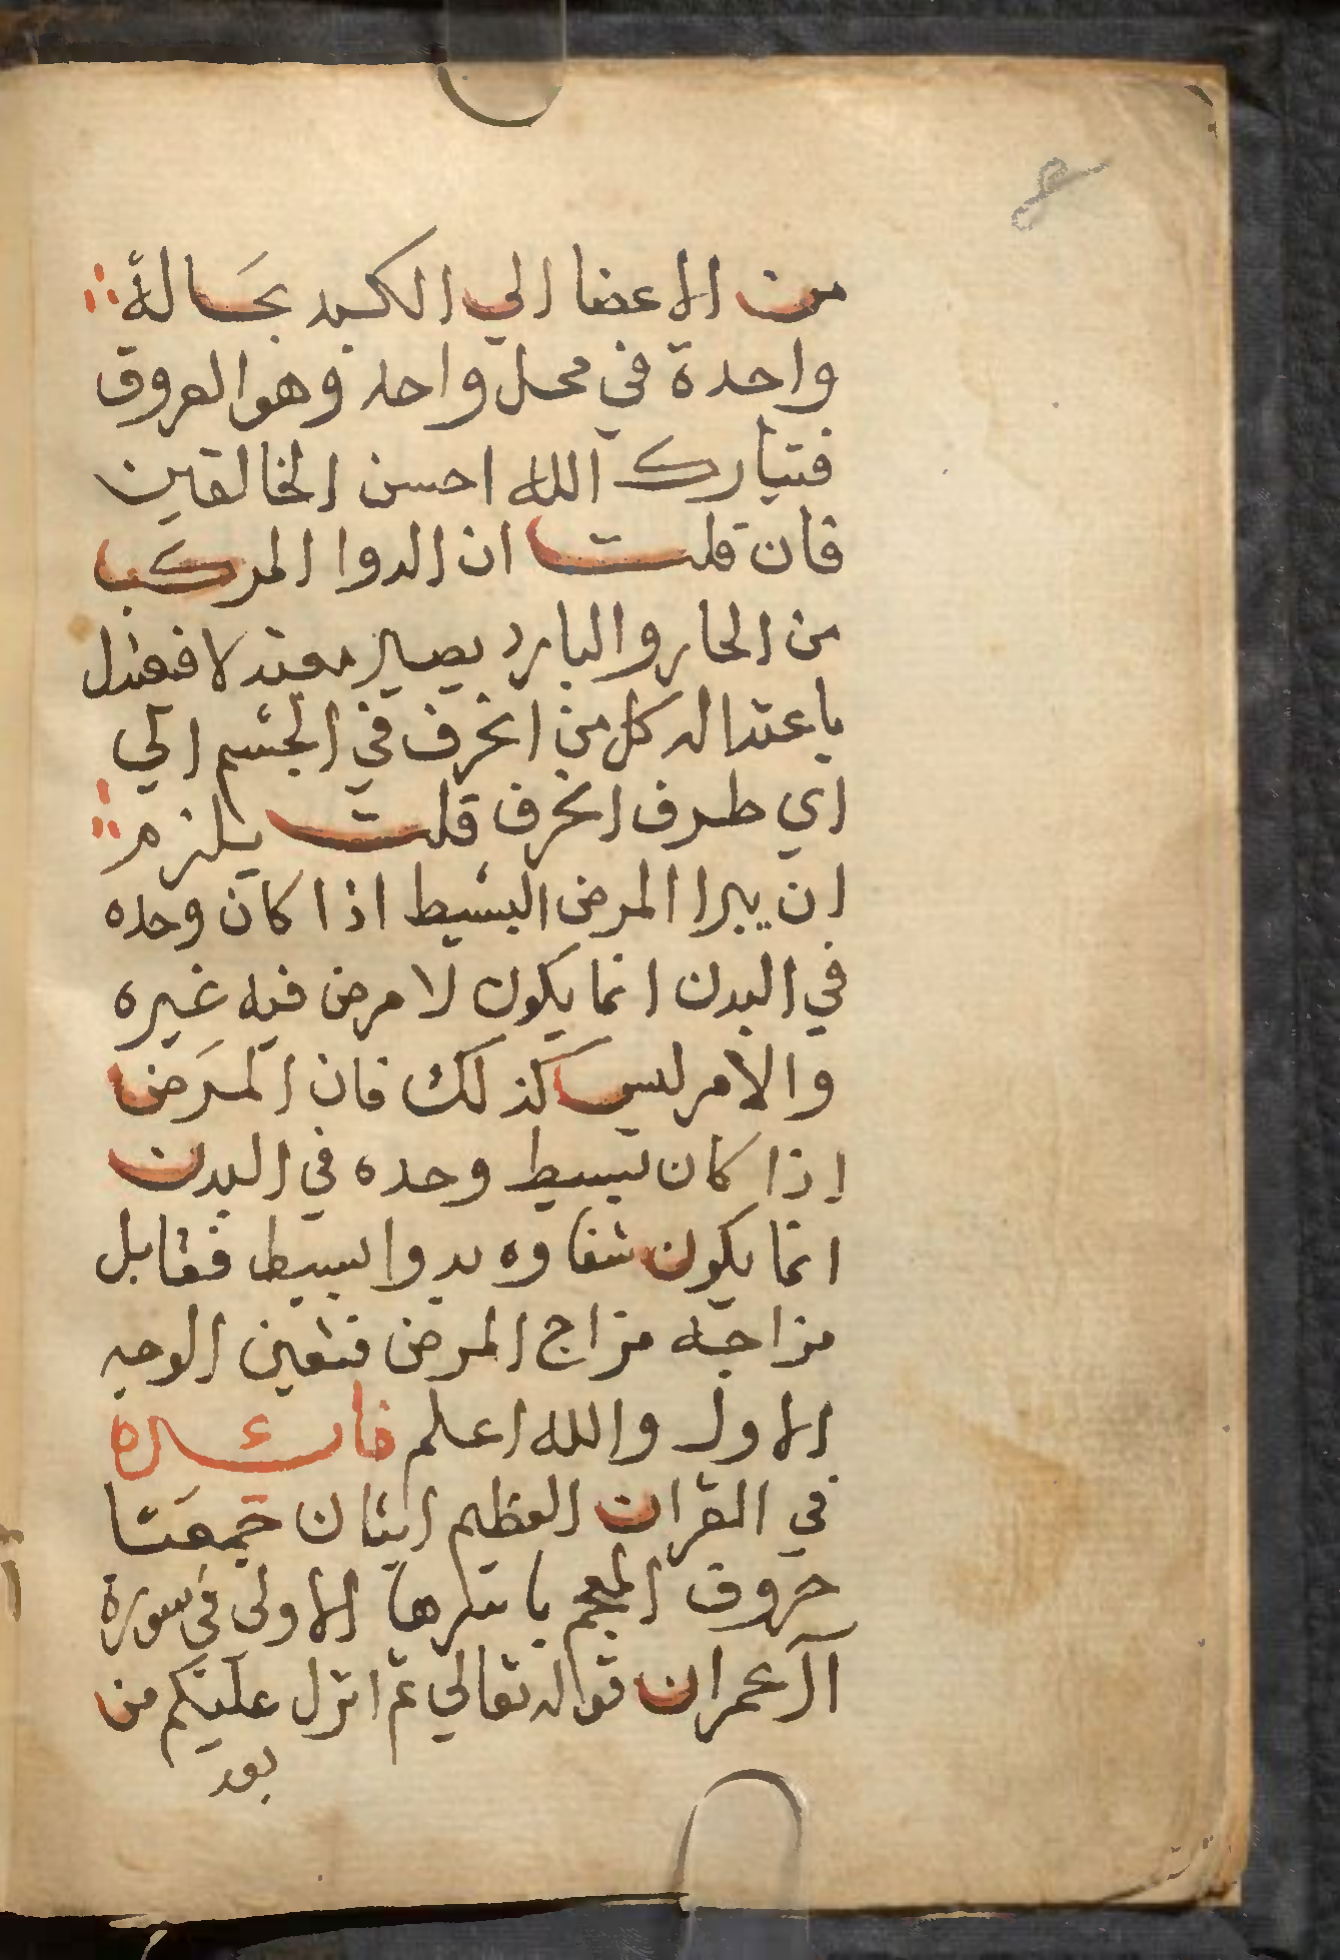 8
من الاعضا الي الكبد بحالة
واحدة في محل واحد وهو العروق
فتبارك الله احسن الخالقين
فان قلت ان الدوا المركب
من الحار والبارد يصير معتدلا فيعتدل
باعتداله كل من انحرف في الجسم الي
اي طرف انحرف قلت يلزم
ان يبرا المرض البسيط اذا كان وحده
في البدن انما يكون لا مرض فيه غيره
والامر ليس كذلك فان المرض
اذا كان بسيط وحده في البدن
انما يكون شفاوه بدوا بسيط فقابل
مزاجه مزاج المرض فتعين الوجه
الاول والله اعلم فائدة
في القران العظيم ايتان جمعتا
حروف المعجم باسرها الاولى في سورة
آل عمران قوله تعالي ثم انزل عليكم من
بعد